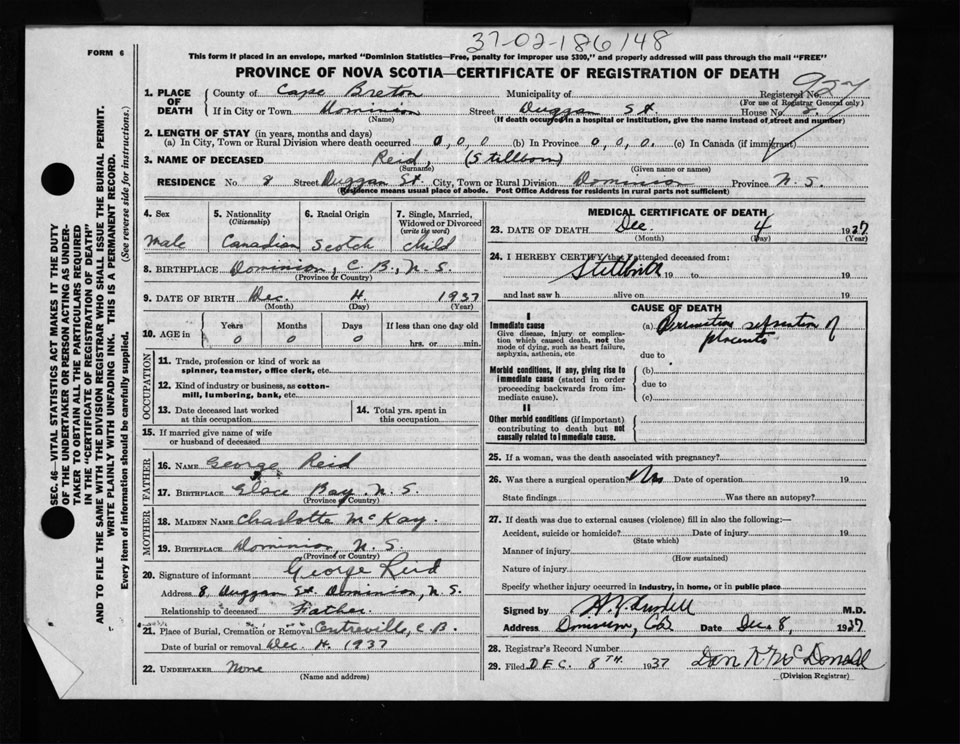 37-02-186148
FORM 6
This form if placed in an envelope, marked "Dominion Statistics—Free, penalty for improper use $300," and properly addressed will pass through the mail "FREE"
PROVINCE OF NOVA SCOTIA—CERTIFICATE OF REGISTRATION OF DEATH
927
1. PLACE OF DEATH County of Cape Breton Municipality of Registered No.
(For use of Registrar General only)
If in City or Town Dominion Street Duggan St. House No. 8.
(Name) (If death occurred in a hospital or institution, give the name instead of street and number)
2. LENGTH OF STAY (in years, months and days)
(a) In City, Town or Rural Division where death occurred 0, 0, 0 (b) In Province 0, 0, 0. (c) In Canada (if immigrant)
3. NAME OF DECEASED Reid, (Stillborn)
(Surname) (Given name or names)
RESIDENCE No. 8 Street Duggan St. City, Town or Rural Division Dominion Province N. S.
(Residence means usual place of abode. Post Office Address for residents in rural parts not sufficient)
4. Sex Male
5. Nationality (Citizenship) Canadian
6. Racial Origin Scotch
7. Single, Married, Widowed or Divorced (write the word) Child
8. BIRTHPLACE Dominion, C. B., N. S.
(Province or Country)
9. DATE OF BIRTH Dec. 4. 1937
(Month) (Day) (Year)
10. AGE in Years 0 Months 0 Days 0 If less than one day old hrs. or min.
OCCUPATION
11. Trade, profession or kind of work as spinner, teamster, office clerk, etc.
12. Kind of industry or business, as cotton-mill, lumbering, bank, etc.
13. Date deceased last worked at this occupation
14. Total yrs. spent in this occupation
15. If married give name of wife or husband of deceased
FATHER
16. NAME George Reid
17. BIRTHPLACE Glace Bay, N. S.
(Province or Country)
MOTHER
18. MAIDEN NAME Charlotte McKay.
19. BIRTHPLACE Dominion, N. S.
(Province or Country)
20. Signature of informant George Reid
Address 8, Duggan St. Dominion, N. S.
Relationship to deceased Father.
21. Place of Burial, Cremation or Removal Centreville, C. B.
Date of burial or removal Dec. 4. 1937
22. UNDERTAKER None
(Name and address)
MEDICAL CERTIFICATE OF DEATH
23. DATE OF DEATH Dec. 4 1937
(Month) (Day) (Year)
24. I HEREBY CERTIFY that I attended deceased from:
Stillbirth 19 to 19
and last saw h alive on 19
CAUSE OF DEATH
I
Immediate cause
Give disease, injury or complication which caused death, not the mode of dying, such as heart failure, asphyxia, asthenia, etc
(a) Premature separation of placenta
due to
Morbid conditions, if any, giving rise to immediate cause (stated in order proceeding backwards from immediate cause).
(b)
due to
(c)
II
Other morbid conditions (if important) contributing to death but not causally related to immediate cause.
25. If a woman, was the death associated with pregnancy?
26. Was there a surgical operation? No Date of operation 19
State findings Was there an autopsy?
27. If death was due to external causes (violence) fill in also the following:—
Accident, suicide or homicide? Date of injury 19
(State which)
Manner of injury
(How sustained)
Nature of injury
Specify whether injury occurred in industry, in home, or in public place
Signed by M.D.
Address Dominion, C.B. Date Dec 8, 1937
28. Registrar's Record Number
29. Filed DEC. 8TH. 1937 Dan N. McDonald
(Division Registrar)
SEC. 46—VITAL STATISTICS ACT MAKES IT THE DUTY
OF THE UNDERTAKER OR PERSON ACTING AS UNDER-
TAKER TO OBTAIN ALL THE PARTICULARS REQUIRED
IN THE "CERTIFICATE OF REGISTRATION OF DEATH"
AND TO FILE THE SAME WITH THE DIVISION REGISTRAR WHO SHALL ISSUE THE BURIAL PERMIT.
WRITE PLAINLY WITH UNFADING INK. THIS IS A PERMANENT RECORD.
Every item of information should be carefully supplied. (See reverse side for instructions.)